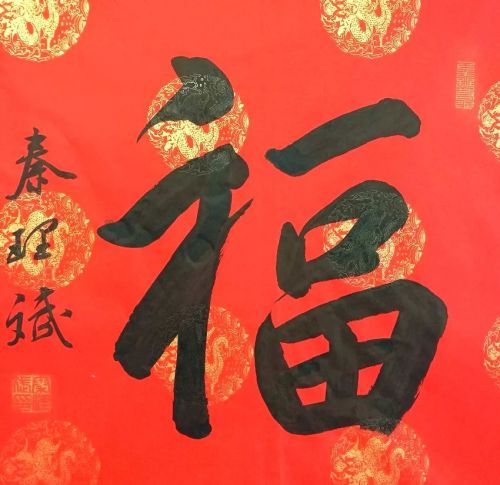 福
秦理斌